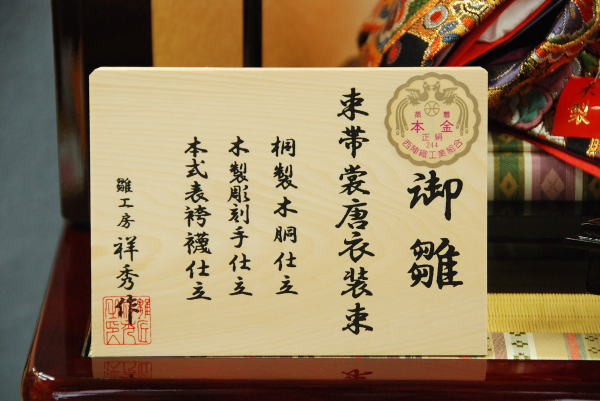 蒸着
本金
正絹
244
西陣織工業組合
御雛
束帯裳唐衣装束
桐製木胴仕立
木製彫刻手仕立
本式表袴襪仕立
雛工房 祥秀作